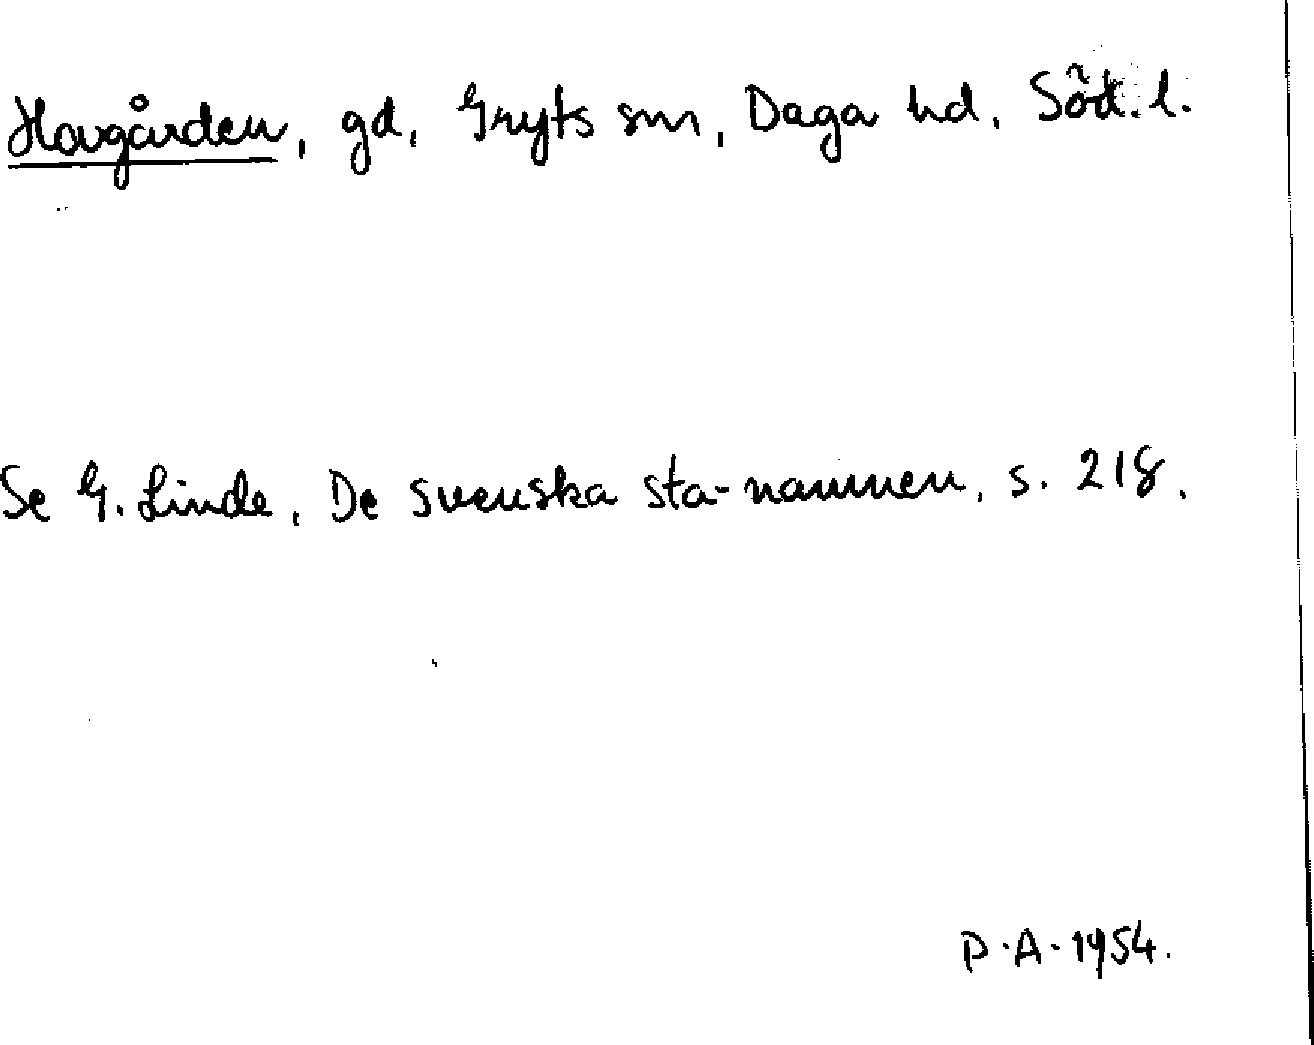 Hovgården, gd, Gryts sn, Daga hd. Söd. l.
Se G. Linde, De svenska sta-namnen, s. 218.
P.A. 1954.